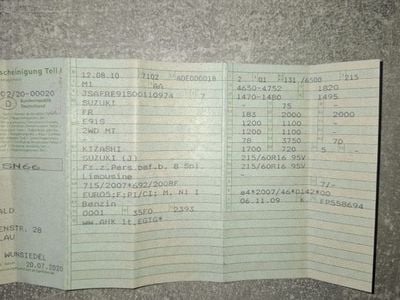 scheinigung Teil I
92/20-00020
D
Bundesrepublik
Deutschland
SN66
ALD
ENSTR. 28
LAU
WUNSIEDEL
20.07.2020
12.08.10 7102 ADE000018
M1 AA
JSAFRE91S00110974 7
SUZUKI
FR
E91S
2WD MT
KIZASHI
SUZUKI (J)
Fz.z.Pers.bef.b. 8 Spl.
Limousine
715/2007*692/2008F
EURO5;F;PI/CI; M, N1 I
Benzin
0001 35F0 2393
ww.AHK lt.EGTG*
2 01 131 /6500 215
4630-4752 1820
1470-1480 1495
- 75 -
183 2000 2000
1200 1100 -
1200 1100 -
78 3750 70
1700 720 5 -
215/60R16 95V
215/60R16 95V
-
- 7/-
e4*2007/46*0142*00
06.11.09 K FP558694